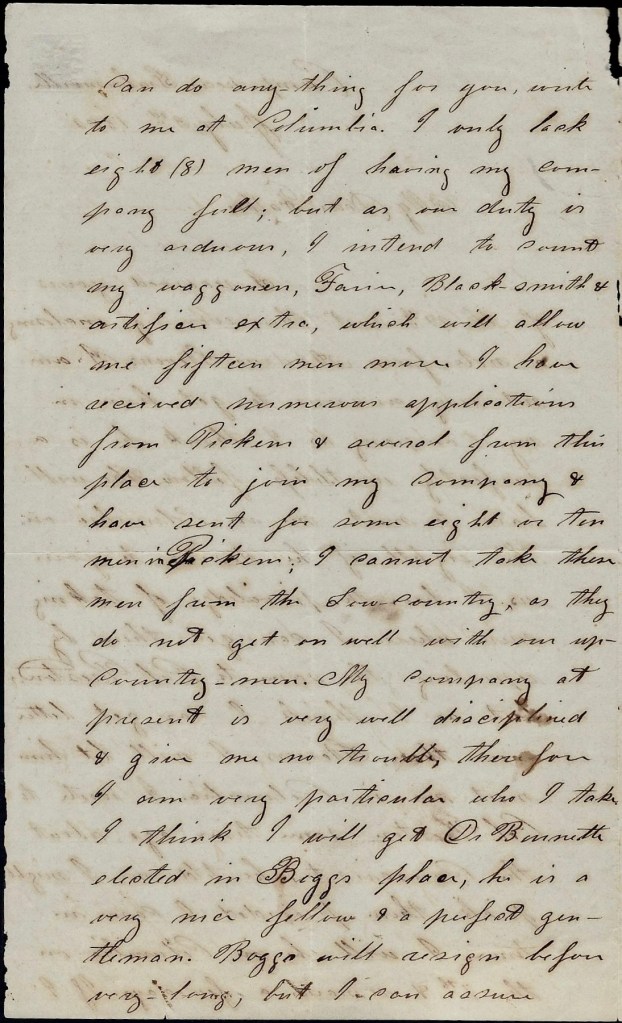 can do any-thing for you, write
to me at Columbia. I only lack
eight (8) men of having my com-
pany full; but as our duty is
very arduous, I intend to count
my waggoner, Farier, Black-smith &
artificer extra, which will allow
me fifteen men more. I have
received numerous applications
from Pickens & several from this
place to join my company &
have sent for some eight or ten
men in Pickens; I cannot take these
men from the Low-country, as they
do not get on well with our up-
country-men. My company at
present is very well disciplined
& give me no trouble, therefore
I am very particular who I take
I think I will get Dr Bonnette
elected in Boggs place, he is a
very nice fellow & a perfect gen-
tleman. Boggs will resign before
very-long, but I can assure